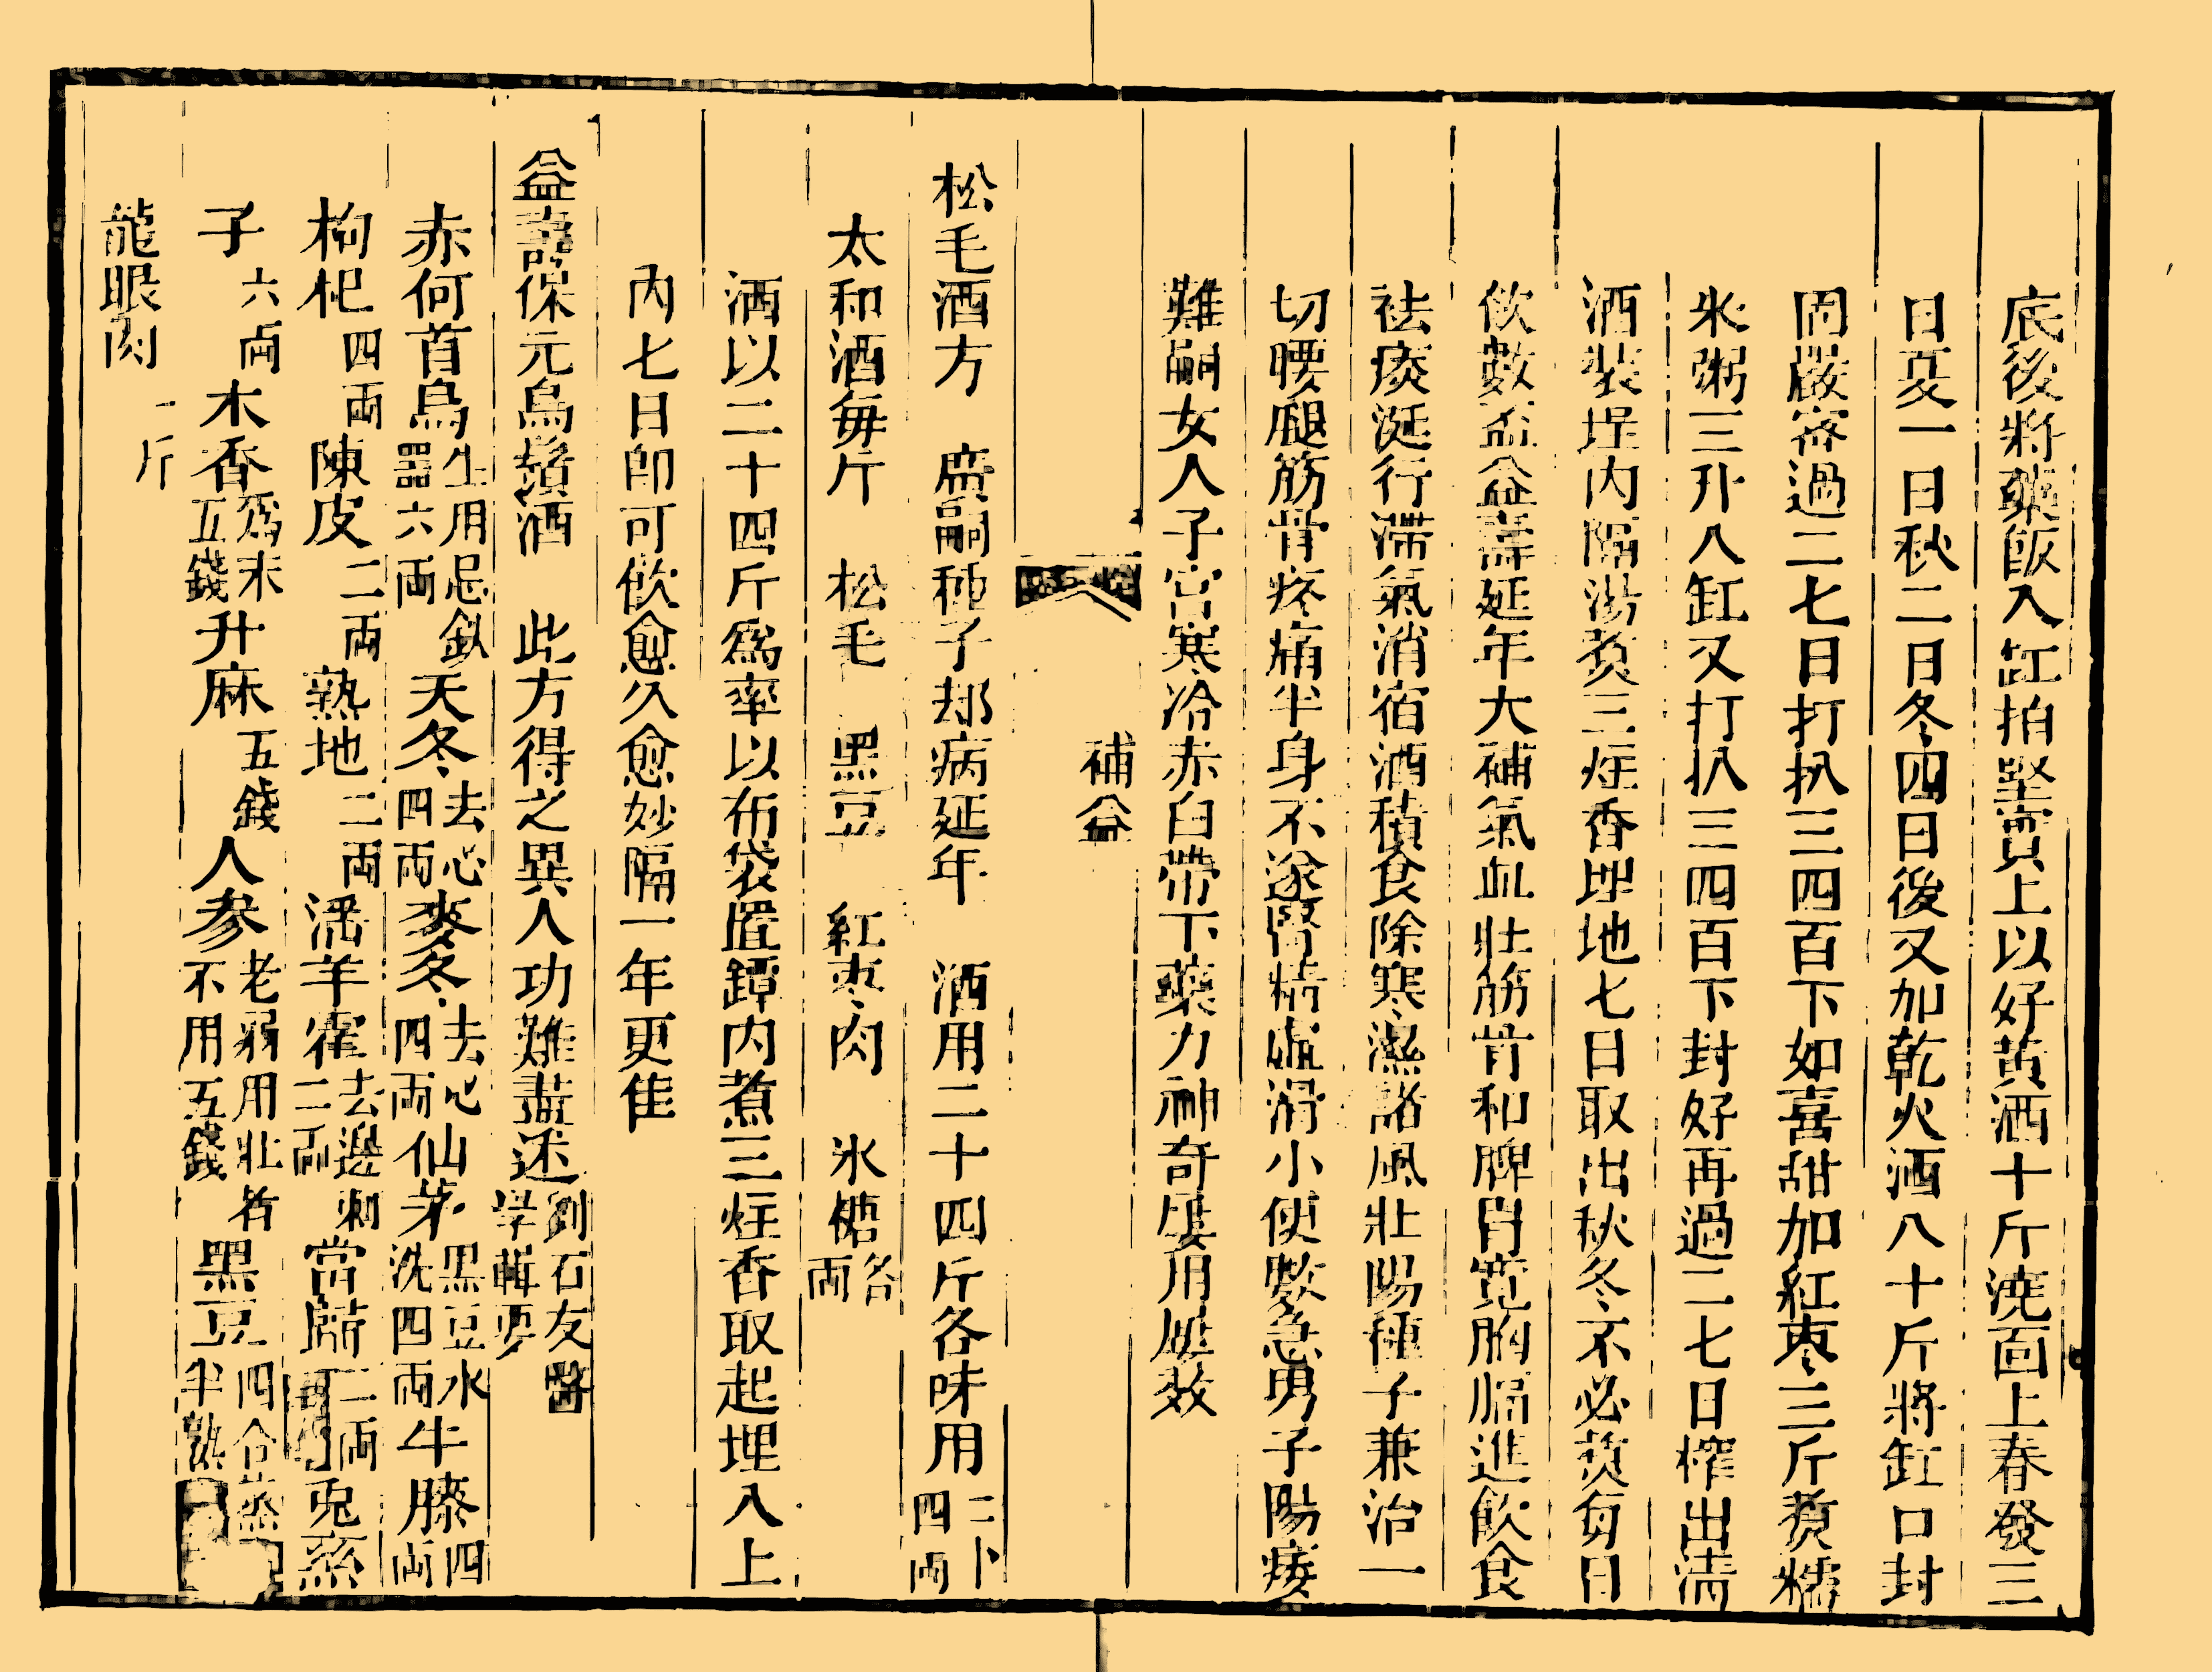 底後將藥飯入缸拍堅實上以好黄酒十斤澆面上春發三
日夏一日秋二日冬四日後又加乾火酒八十斤將缸口封
固嚴密過二七日打扒三四百下如喜甜加紅枣三斤煑糯
米粥三升入缸又打扒三四百下封好再過二七日榨出清
酒裝埕内隔湯煑三炷香埋地七日取出秋冬不必煑每日
飲數盃益壽延年大補氣血壯筋骨和脾胃寬胸膈進飲食
祛痰涎行滯氣消宿酒積食除寒濕諸風壯陽種子兼治一
切腰腿筋骨疼痛半身不遂腎精虛滑小便數急男子陽痿
難嗣女人子宮寒冷赤白帶下藥力神奇屢用屢效
補益
松毛酒方　廣嗣種子却病延年　酒用二十四斤各味用二十四兩
太和酒每斤　松毛　黑豆　紅枣肉　氷糖各兩
酒以二十四斤爲率以布袋置罈内煮三炷香取起埋入上
内七日即可飲愈久愈妙隔一年更佳
益壽保元烏鬚酒　此方得之異人功難盡述劉石友
赤何首烏生用忌鉄器六兩天冬去心四兩麥冬去心四兩仙茅黑豆水洗四兩牛膝四兩
枸杞四兩陳皮二兩熟地二兩淫羊霍去邊刺二兩當歸二兩兎絲
子六兩木香爲末五錢升麻五錢人參老弱用壯者不用五錢黑豆四合蒸半熟
龍眼肉一斤